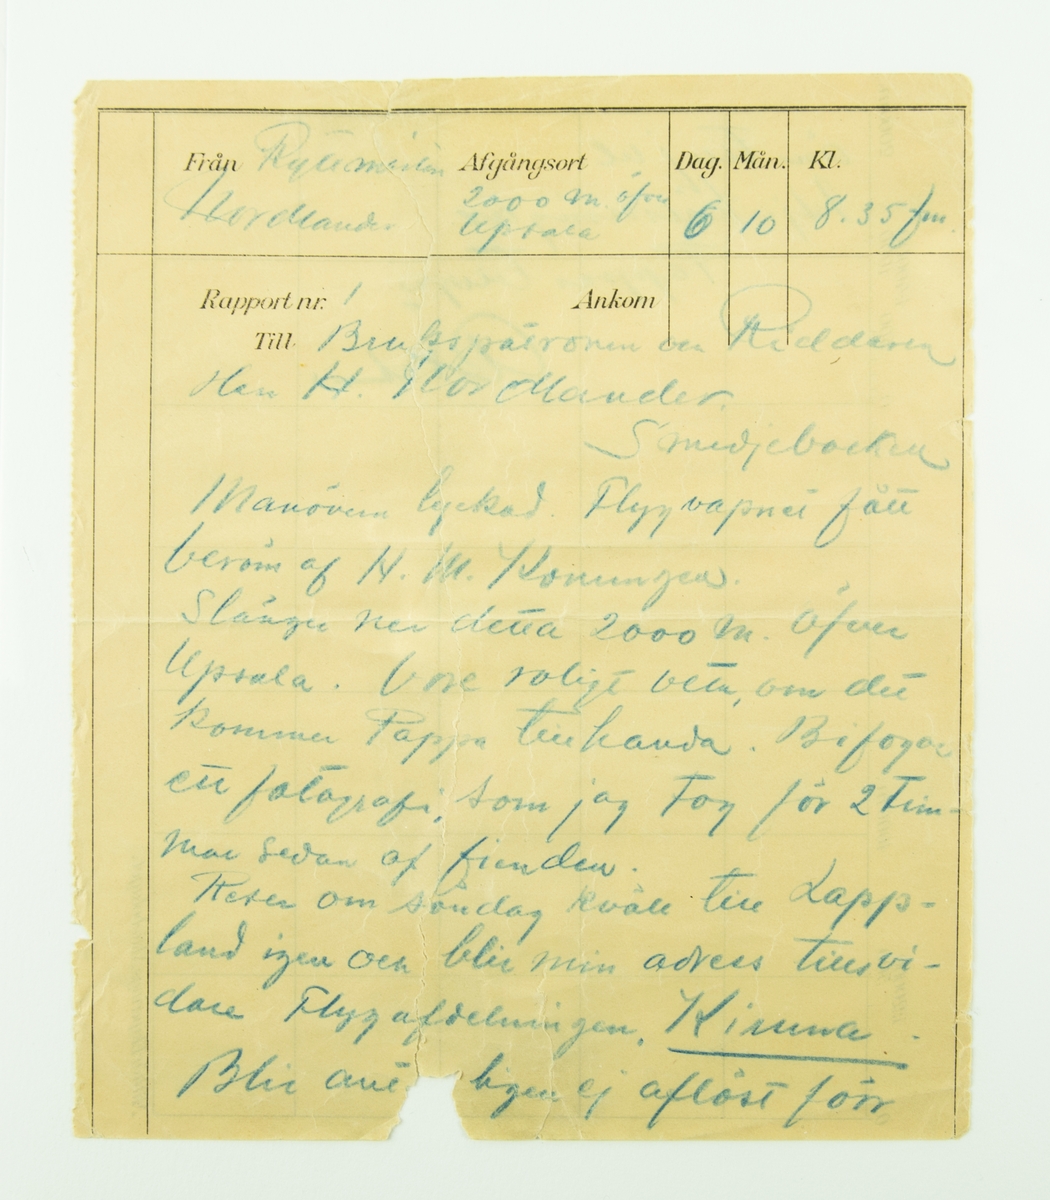 Från Ryttmästare Afgångsort Dag. Mån. Kl.
Nordlander 2000 m. öfver Upsala 6 10 8.35 fm.
Rapport nr. 1 Ankom
Till Brukspatronen och Riddaren
Herr H. Nordlander.
Smedjebacken
Manövern lyckad. Flygvapnet fått
beröm af H. M. Konungen.
Slänger ner detta 2000 m. öfver
Upsala. Vore roligt veta, om det
kommer Pappa tillhanda. Bifogar
ett fotografi, som jag tog för 2 tim-
mar sedan af fienden.
Reser om söndag kväll till Lapp-
land igen och blir min adress tillsvi-
dare Flygafdelningen, Kiruna.
Blir ant ligen ej aflöst förr